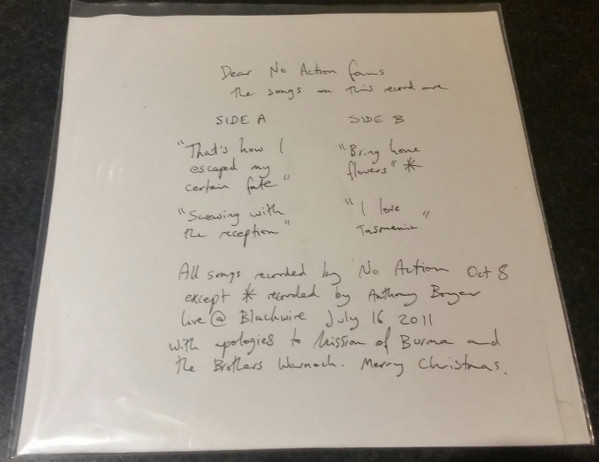 Dear No Action fans
the songs on this record are
SIDE A
"That's how I
escaped my
certain fate"
"Screwing with
the reception"
SIDE B
"Bring home
flowers" *
"I love
Tasmania"
All songs recorded by No Action Oct 8
except * recorded by Anthony
live @ Blackwire July 16 2011
with apologies to Mission of Burma and
the Brothers Warnock. Merry Christmas.